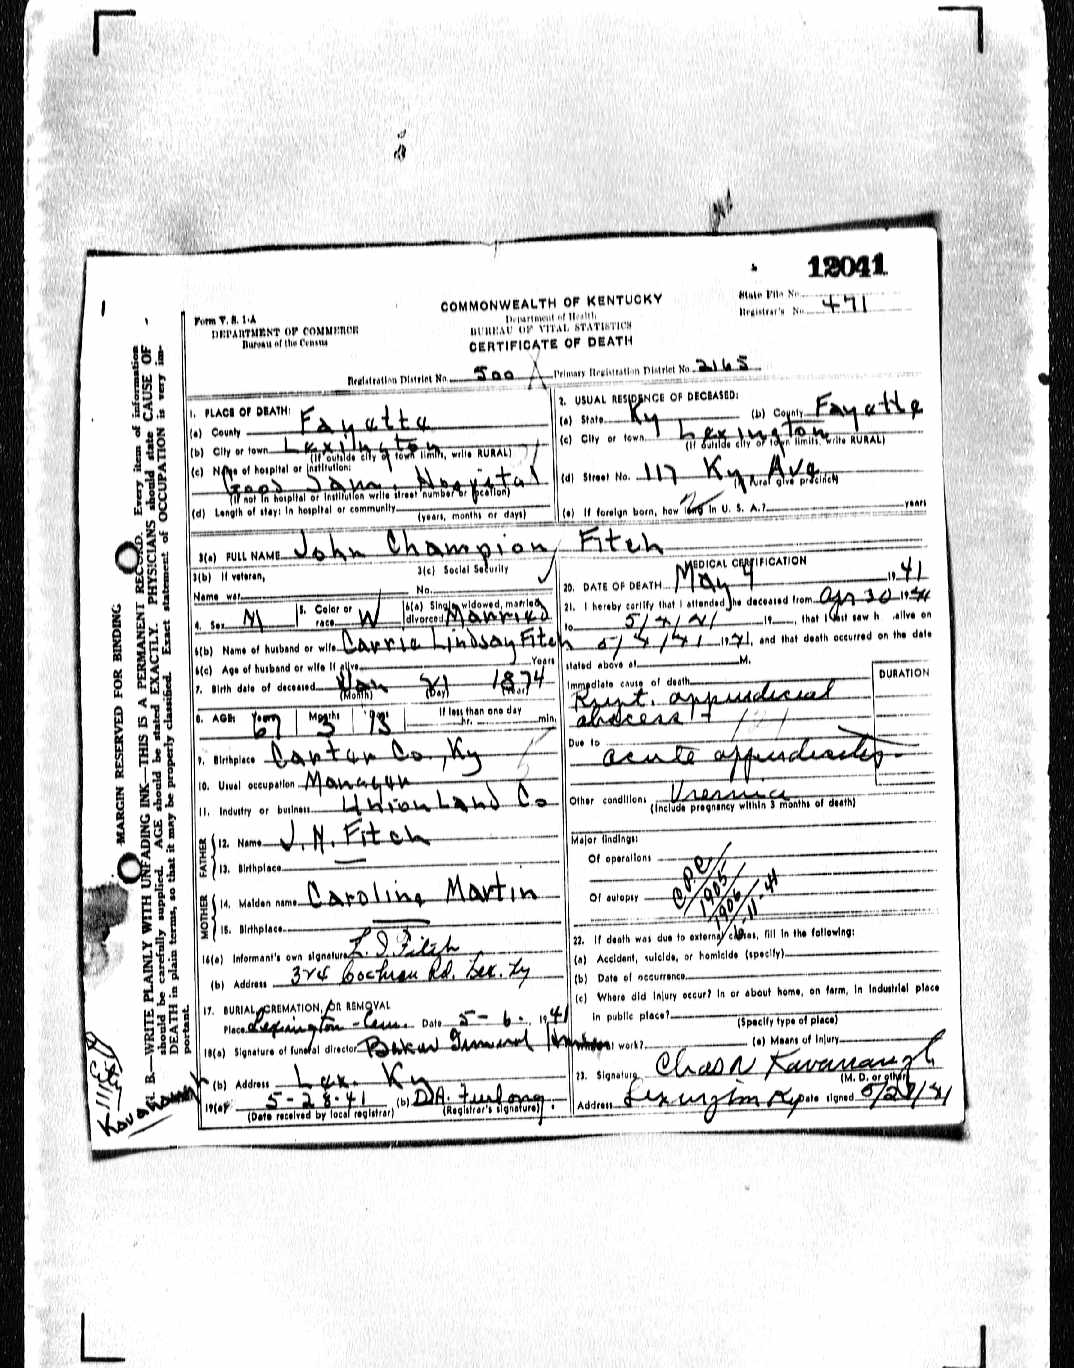 12041
State File No.
Registrar's No. 471
COMMONWEALTH OF KENTUCKY
Department of Health
BUREAU OF VITAL STATISTICS
CERTIFICATE OF DEATH
Form V. S. 1-A
DEPARTMENT OF COMMERCE
Bureau of the Census
Registration District No. 500 Primary Registration District No. 2165
MARGIN RESERVED FOR BINDING
N. B.—WRITE PLAINLY WITH UNFADING INK—THIS IS A PERMANENT RECORD. Every item of information
should be carefully supplied. AGE should be stated EXACTLY. PHYSICIANS should state CAUSE OF
DEATH in plain terms, so that it may be properly classified. Exact statement of OCCUPATION is very im-
portant.
1. PLACE OF DEATH:
(a) County Fayette
(b) City or town Lexington
(If outside city or town limits, write RURAL)
(c) Name of hospital or institution:
Good Sam. Hospital
(If not in hospital or institution write street number or location)
(d) Length of stay: In hospital or community
(years, months or days)
2. USUAL RESIDENCE OF DECEASED:
(a) State Ky (b) County Fayette
(c) City or town Lexington
(If outside city or town limits, write RURAL)
(d) Street No. 117 Ky. Ave
(If rural give precinct)
(e) If foreign born, how long in U. S. A.? years
3(a) FULL NAME John Champion Fitch
3(b) If veteran,
Name war
3(c) Social Security
No.
4. Sex M 5. Color or race W 6(a) Single, widowed, married, divorced Married
6(b) Name of husband or wife Carrie Lindsay Fitch
6(c) Age of husband or wife if alive Years
7. Birth date of deceased Jan 21 1874
(Month) (Day) (Year)
8. AGE: Years 67 Months 3 Days 13 If less than one day hr. min.
9. Birthplace Carter Co., Ky
10. Usual occupation Manager
11. Industry or business Union Land Co
FATHER
12. Name J. N. Fitch
13. Birthplace —
MOTHER
14. Maiden name Caroline Martin
15. Birthplace —
16(a) Informant's own signature L. I. Fitch
(b) Address 324 Cochran Rd. Lex. Ky
17. BURIAL, CREMATION, OR REMOVAL
Place Lexington-Cem. Date 5-6-, 1941
18(a) Signature of funeral director Baker Funeral
(b) Address Lex. Ky
19(a) 5-28-41 (b) D.A. Furlong
(Date received by local registrar) (Registrar's signature)
MEDICAL CERTIFICATION
20. DATE OF DEATH May 4 1941
21. I hereby certify that I attended the deceased from Apr 30 1941
to 5/4/41 19, that I last saw h alive on
5/4/41 1941, and that death occurred on the date
stated above at M.
Immediate cause of death DURATION
Rupt. appendicial
abscess
Due to
acute appendicitis
Other conditions Uremia
(Include pregnancy within 3 months of death)
Major findings:
Of operations
Of autopsy
CPC
1905
1906
6-11-41
22. If death was due to external causes, fill in the following:
(a) Accident, suicide, or homicide (specify)
(b) Date of occurrence
(c) Where did injury occur? In or about home, on farm, in industrial place
in public place?
(Specify type of place)
work? (e) Means of Injury
23. Signature Chas N Kavanaugh
(M. D. or other)
Address Lexington Ky Date signed 5/27/41
Kavanaugh